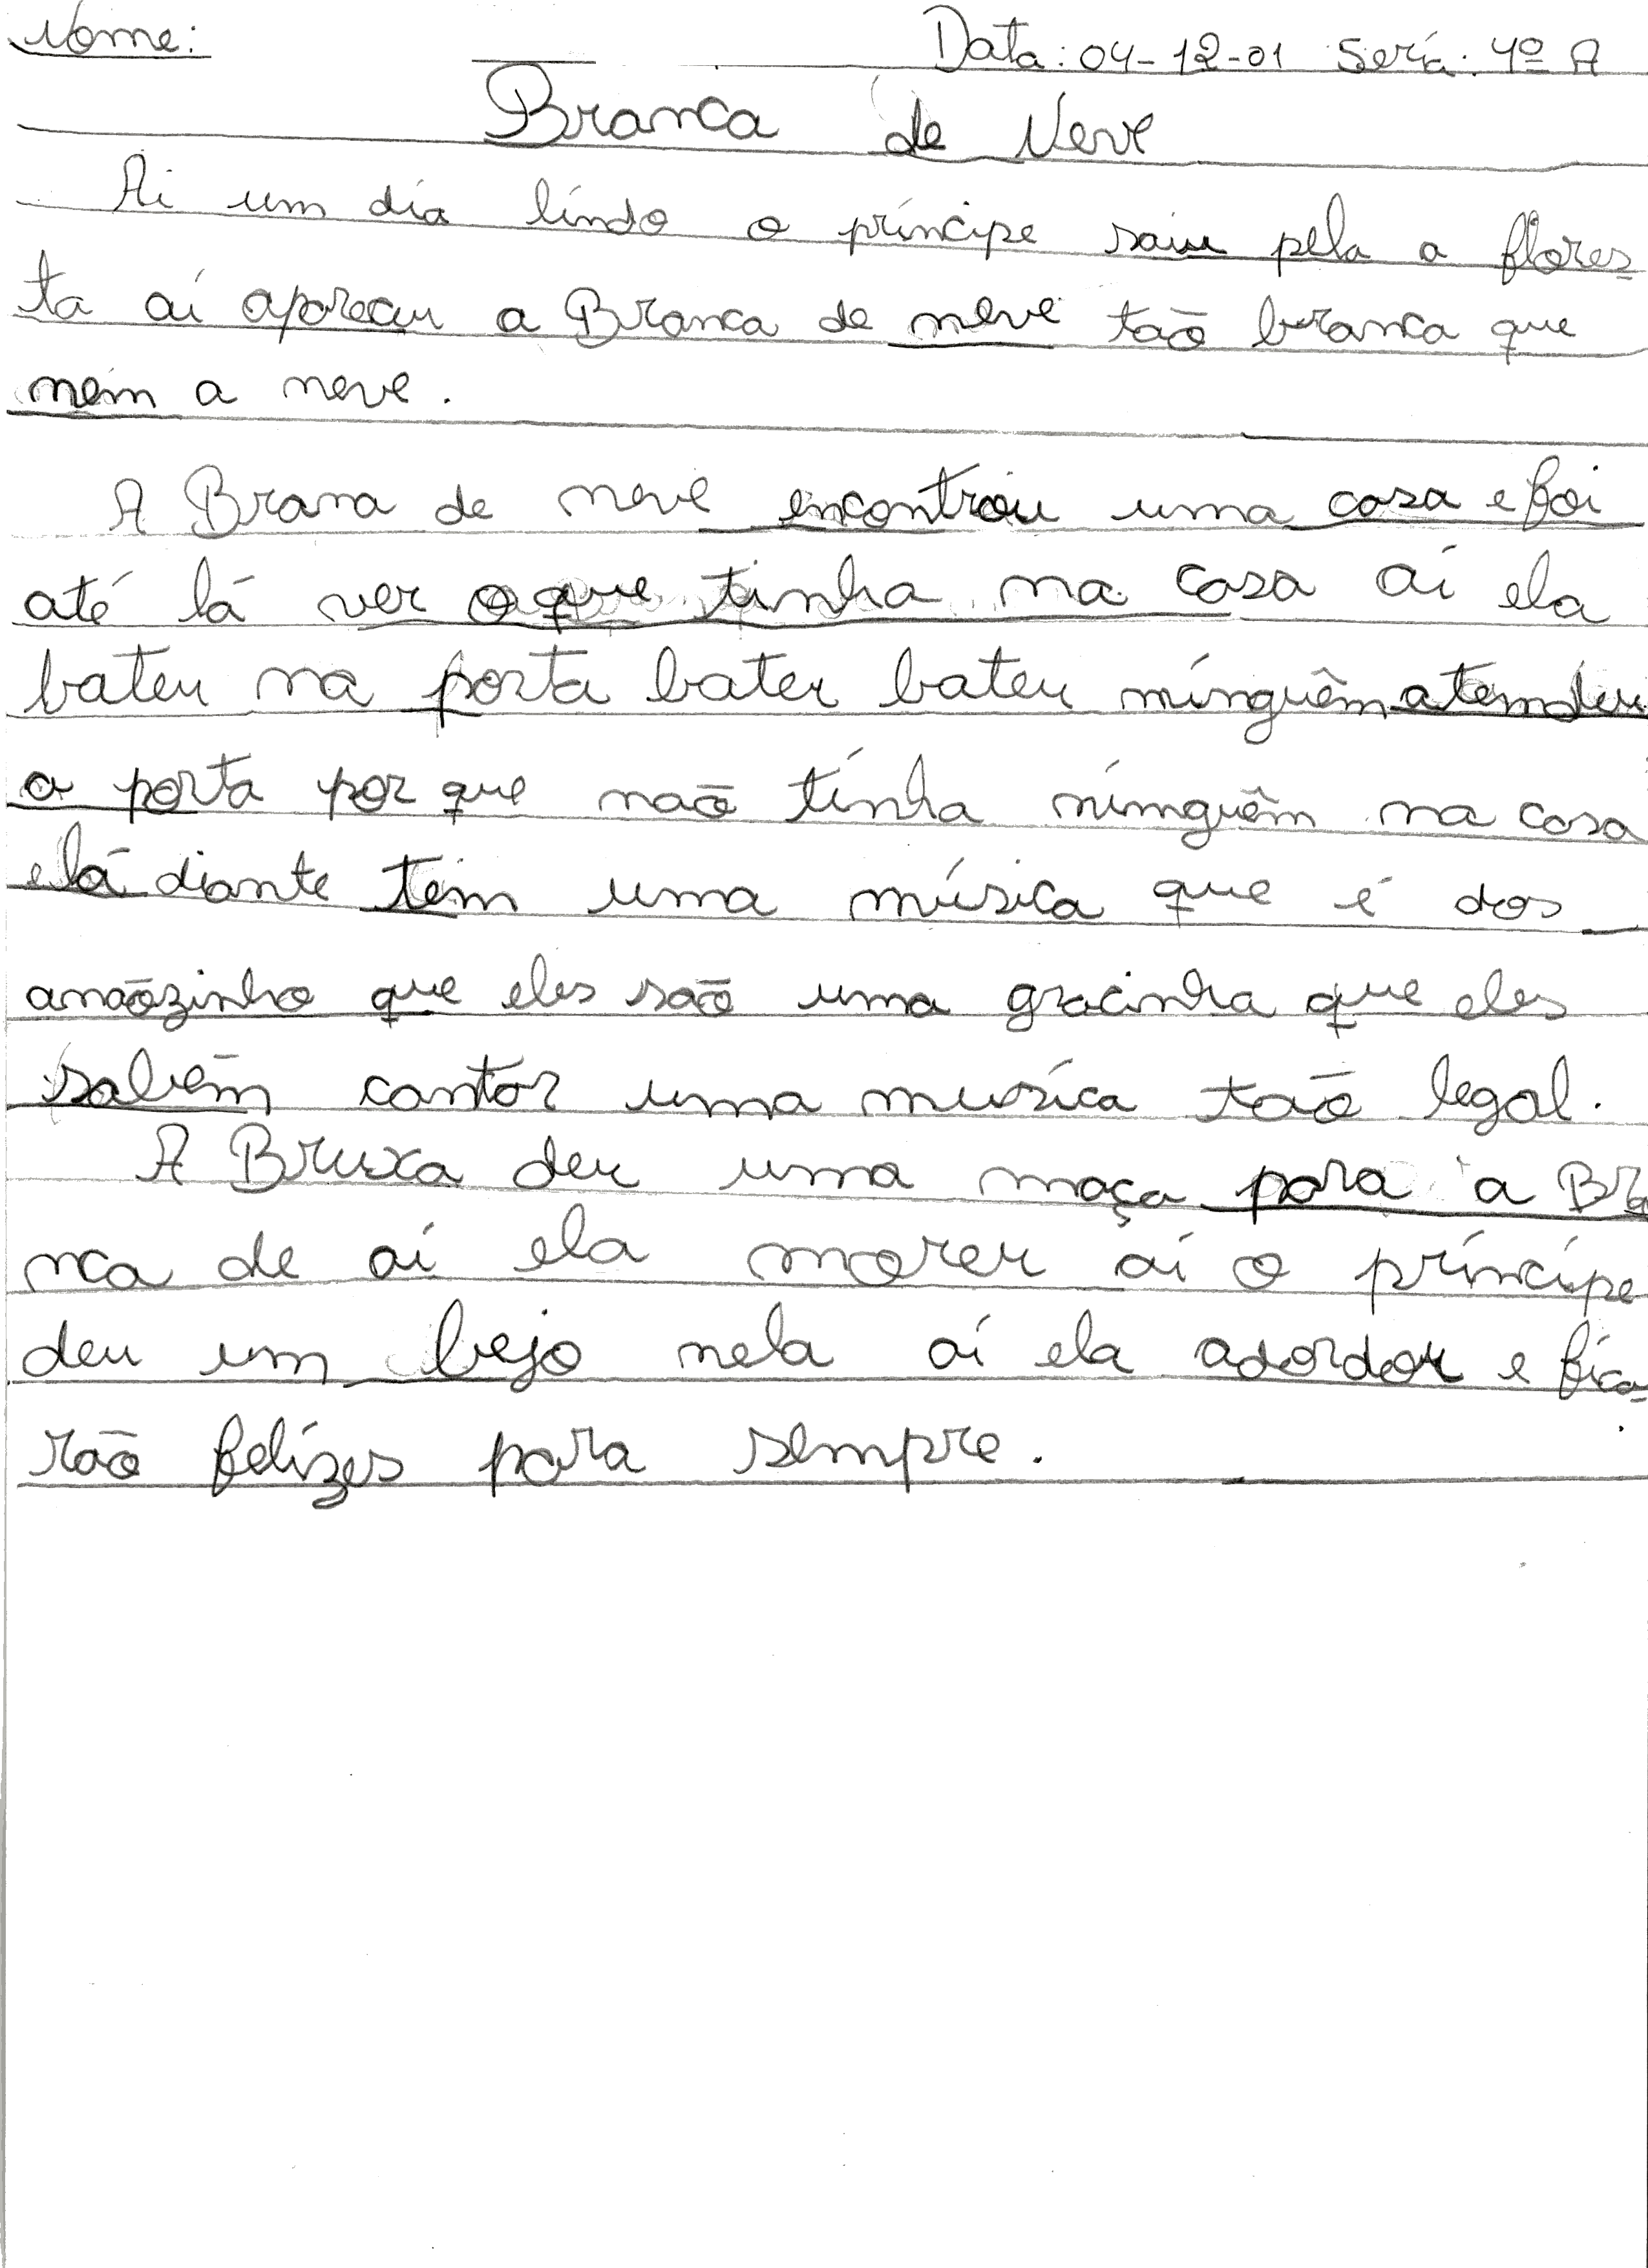 Nome: Data: 04-12-01 Sería: 4º A
Branca de Neve
Ai um día líndo o príncipe saiu pela a flores-
ta aí apareceu a Branca de neve taõ branca que
nem a neve.
A Brana de neve encontrou uma casa e foi
até lá ver oque tinha na casa aí ela
bateu na porta bater bateu nínguêm atendeu
a porta por que naõ tínha nímguêm na casa
e lá diante tem uma música que é dos
anaõzinho que eles saõ uma gracinha que eles
sabem cantar uma musíca taõ legal.
A Bruxa deu uma maça para a Bra
nca de aí ela morer aí o príncípe
deu um bejo nela aí ela adordou e fica-
raõ felízes para sempre.